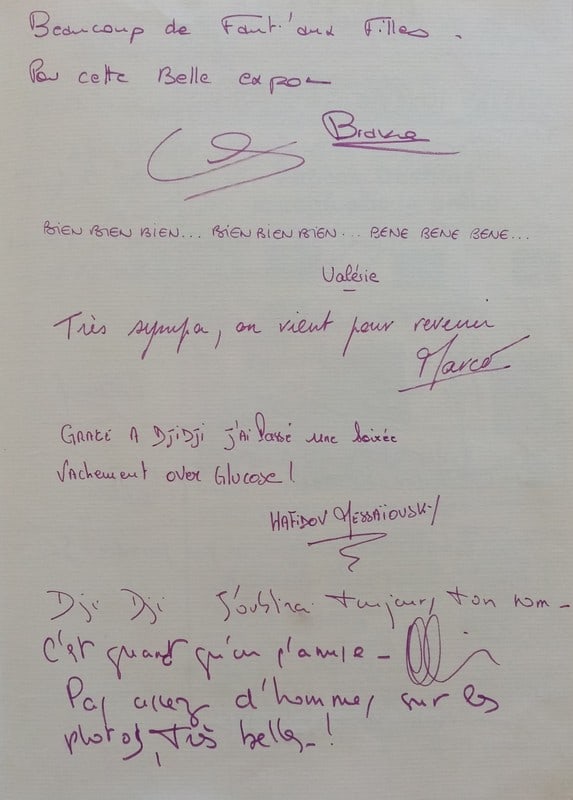 Beaucoup de Fant.'aux Filles.
Pour cette Belle expo—
Bravo
BIEN BIEN BIEN... BIEN BIEN BIEN... BENE BENE BENE...
Valérie
Très sympa, on vient pour revenir
Marco
GRACE A DjiDji j'Ai Passé une Soirée
VAchement over Glucose!
HAFIDOV MESSAÏOUSKY
Dji Dji J'oublirai toujours ton nom—
C'est quand qu'on s'amuse—
Pas assez d'hommes sur les
photos, très belles—!